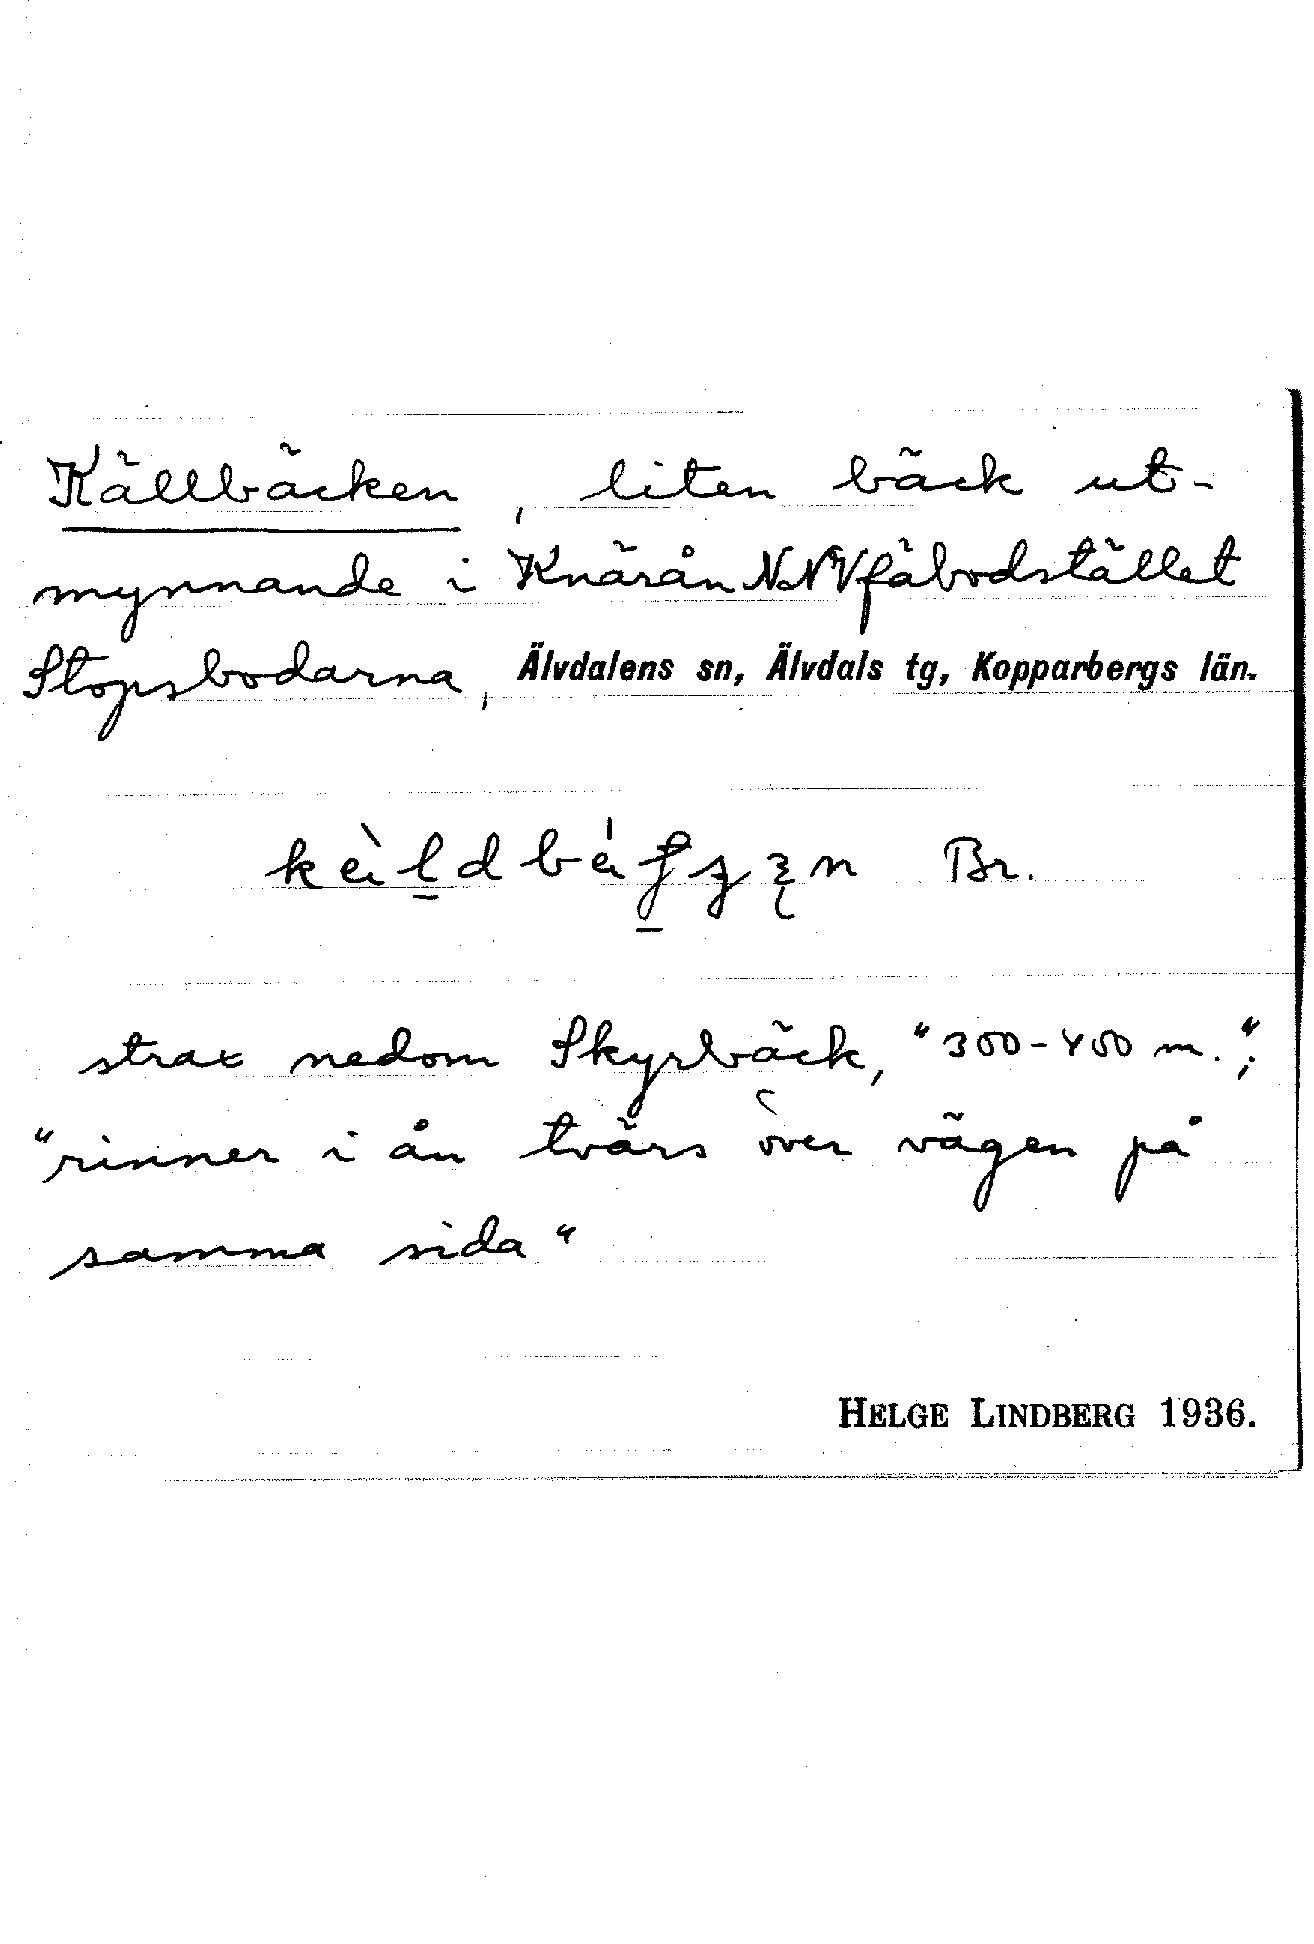 Källbäcken, liten bäck ut-
mynnande i Knärån NNV fäbodstället
Stopsbodarna, Älvdalens sn, Älvdals tg, Kopparbergs län.
Br.
strax nedom Skyrbäck, "300-400 m.";
"rinner i ån tvärs över vägen på
samma sida"
HELGE LINDBERG 1936.